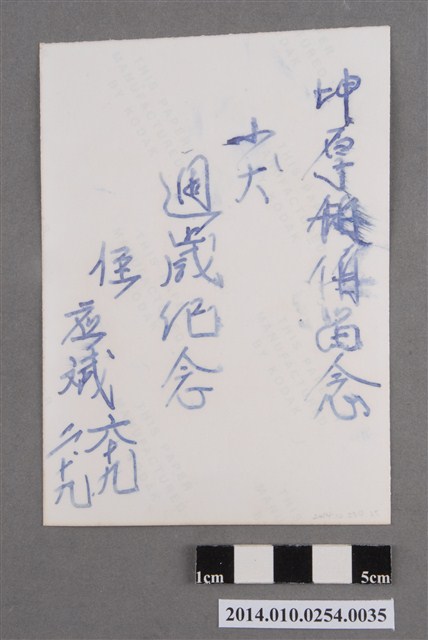 坤厚伯留念
小犬
週歲紀念
侄
應斌
六十九
二、十九
1cm 5cm
2014.010.0254.0035